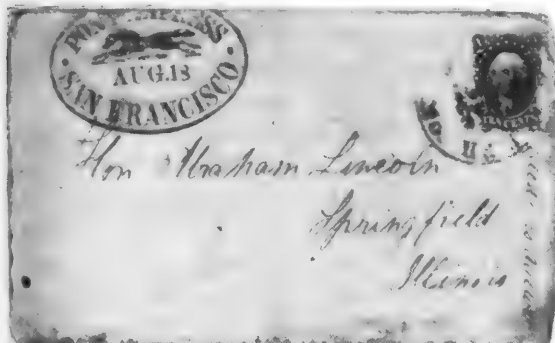 PONY EXPRESS
AUG.18
SAN FRANCISCO
TEN CENTS
Hon Abraham Lincoln
Springfield
Illinois